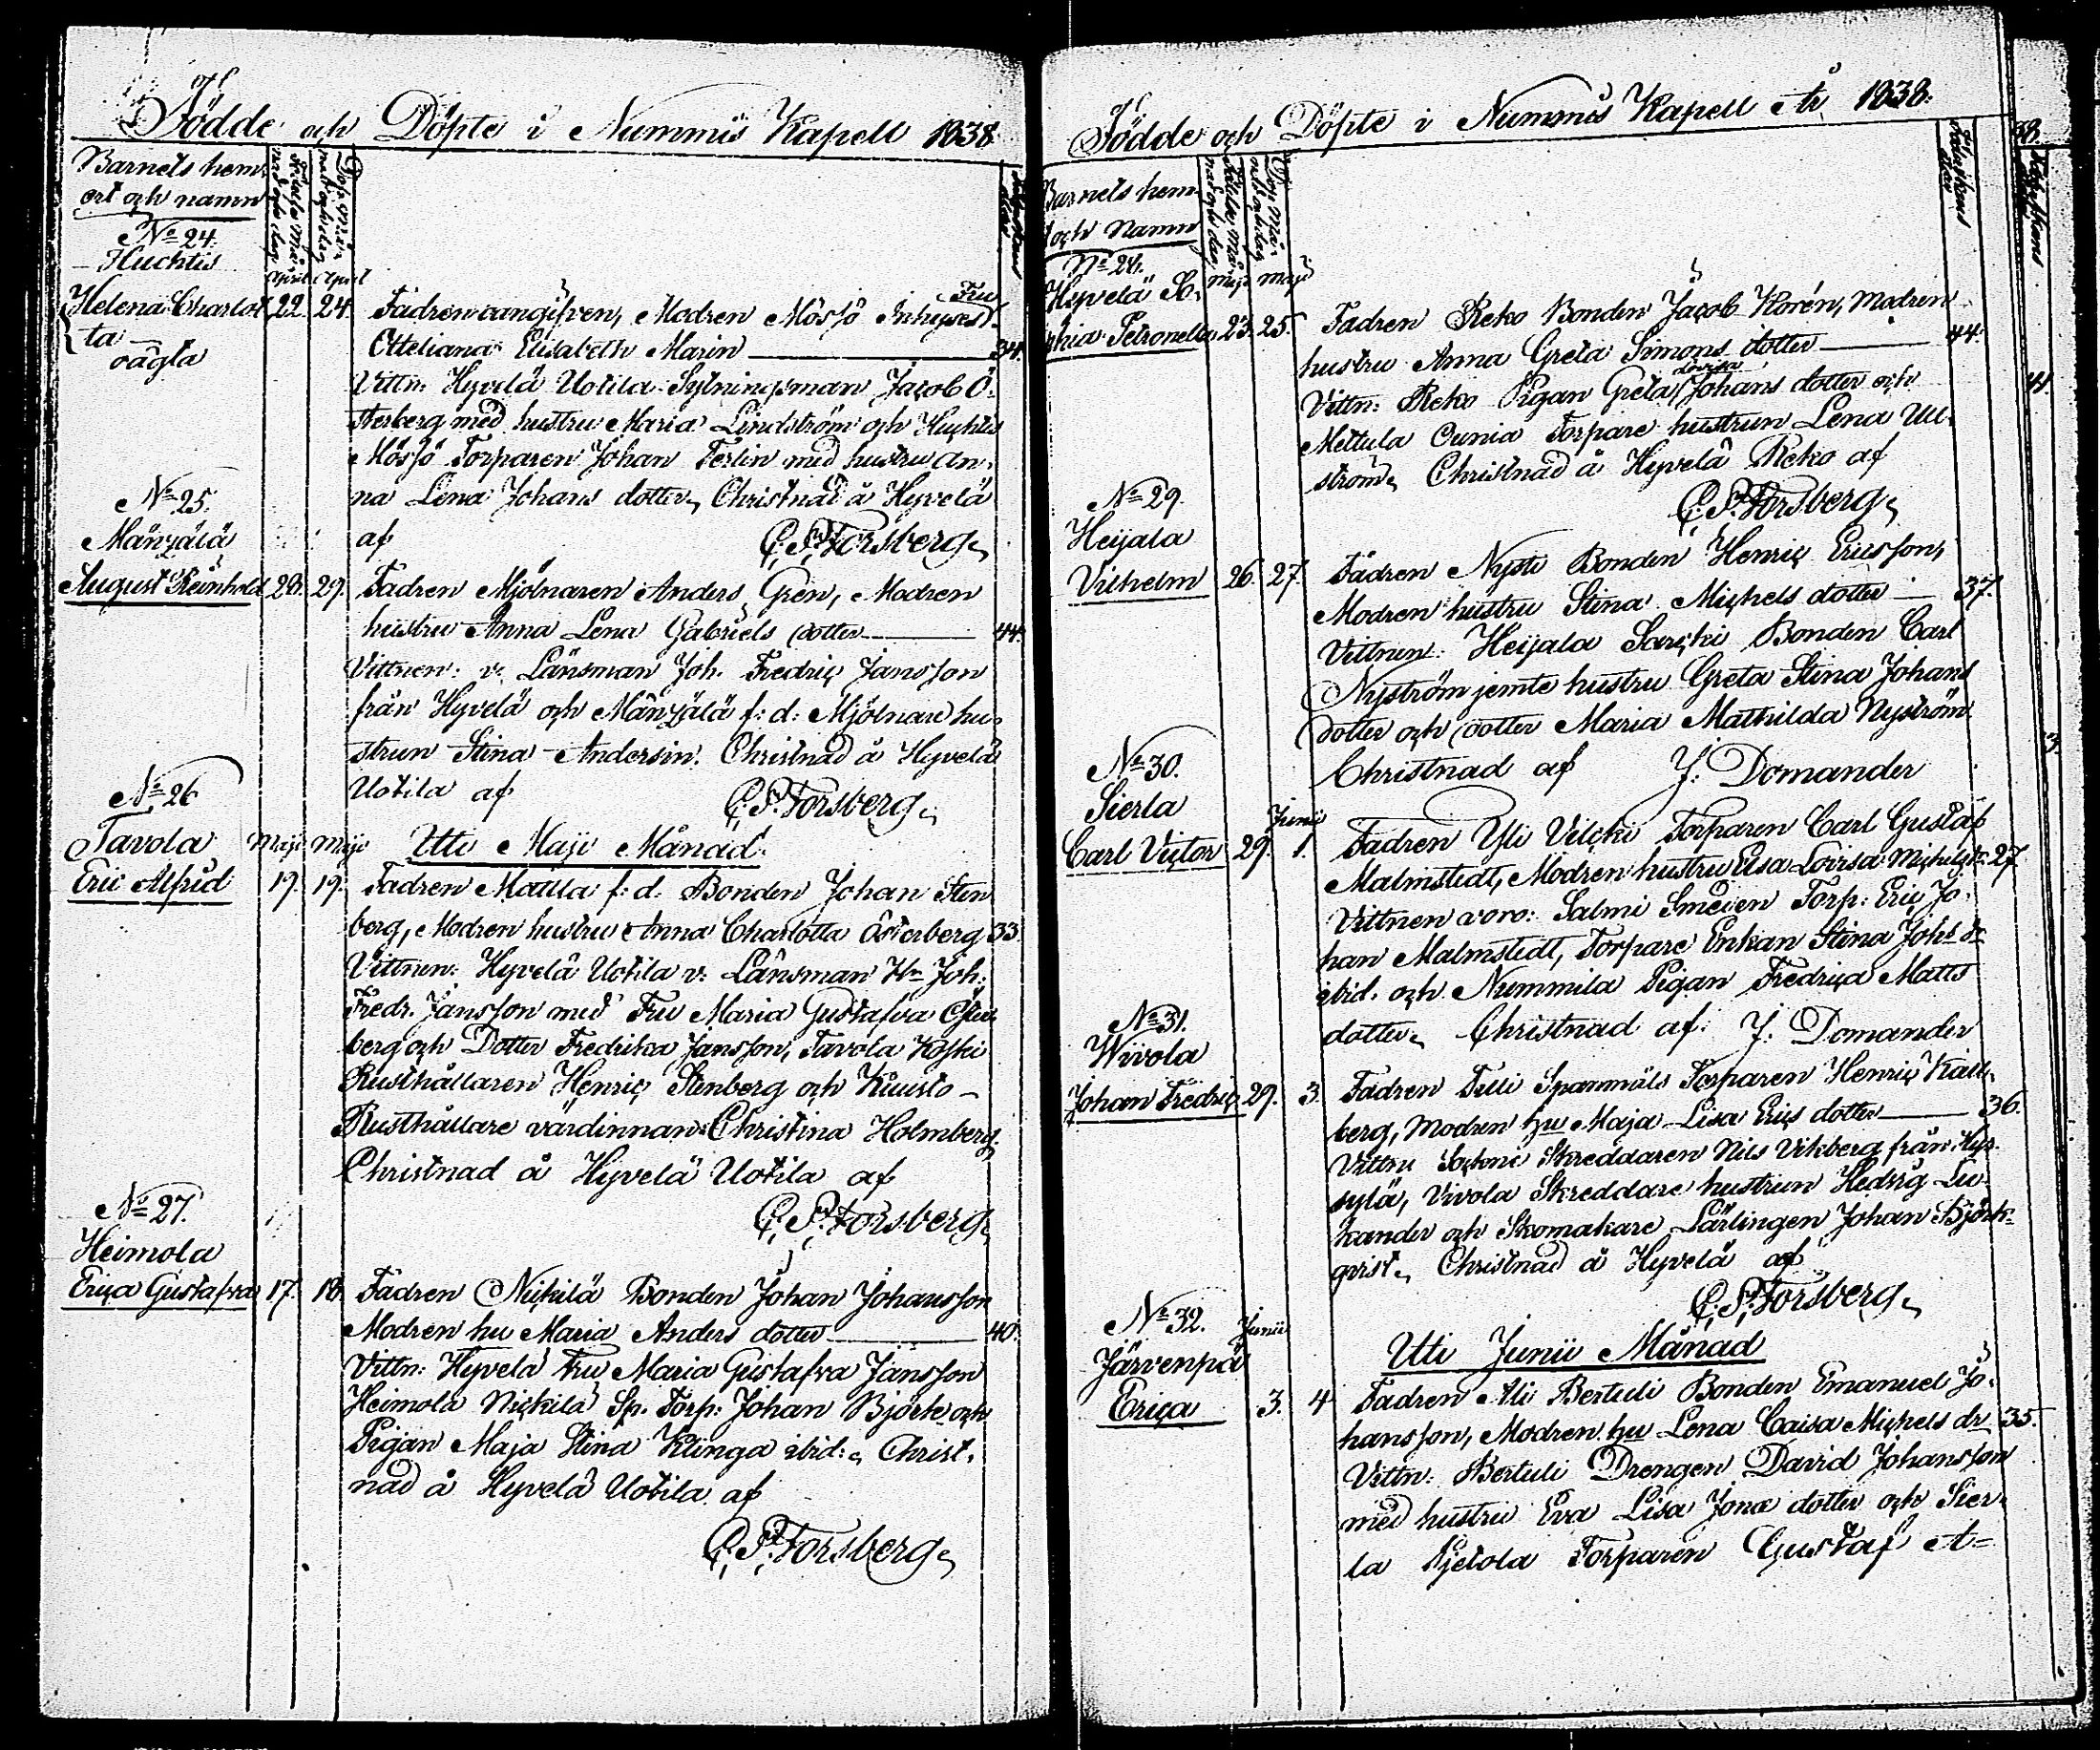 Födde och Döpte i Nummis Kapell 1838
Barnets hem-
ort och namn
No 24.
Huchtis
April April
Helena Charlot 22. 24. Fadren oangifven, Modren Mösjö Inhyses Fru
ta
Otteliana Elisabeth Marin 34.
oägta
Vittn: Hyvelä Uotila Sytningsman Jacob Ö-
sterberg med hustru Maria Lindström och Huchtis
Mösjö Torparen Johan Terlin med hustru An-
na Lena Johans dotter, Christnad å Hyvelä
af C. P. Forsberg
No 25.
August Reinhold 28. 29. Fadren Mjölnaren Anders Gren, Modren
hustru Anna Lena Gabriels dotter 44.
Vittnen: v. Länsman Joh. Fredric Jansson
från Hyvelä och f: d: Mjölnare hu-
strun Stina Andersin. Christnad å Hyvelä
Uotila af C. P. Forsberg
No 26
Tavola Maji Maji Uti Maji Månad.
Eric Alfrid 19. 19. Fadren Mattla f: d: Bonden Johan Sten
berg, Modren hustru Anna Charlotta Österberg 33.
Vittnen: Hyvelä Uotila v: Länsman Hr Joh:
Fredr. Jansson med Fru Maria Gustafva
berg och Dotter Fredrika Jansson, Tavola Koski
Rusthållaren Henric Stenberg och Kuusto
Rusthållare värdinnan Christina Holmberg.
Christnad å Hyvelä Uotila af
C. P. Forsberg
No 27.
Heimola
Erica Gustafva 17. 18. Fadren Nickilä Bonden Johan Johansson
Modren hu Maria Anders dotter 40.
Vittn: Hyvelä Fru Maria Gustafva Jansson
Heimola Nickilä Sp. Torp: Johan Björk och
Pigan Maja Stina Klinga ibid: Christ-
nad å Hyvelä Uotila af
C. P. Forsberg
Födde och Döpte i Nummis Kapell År 1838.
Barnets hem-
och Namn
No 28.
Maji Maji
Hyvelä So-
phia Petronella 23. 25. Fadren Reko Bonden Jacob Florén, Modren
hustru Anna Greta Simons dotter 44.
Vittn: Reko Pigan Greta Lovisa Johans dotter och
Mettula Ounia Torpare hustrun Lena Uu-
ström, Christnad å Hyvelä Reko af
C. P. Forsberg
No 29.
Heijala
Vilhelm 26. 27. Fadren Nysti Bonden Henric Ericsson,
Modren hustru Stina Michels dotter 37.
Vittnen: Heijala Sarcki Bonden Carl
Nyström jemte hustru Greta Stina Johans
dotter och dotter Maria Mathilda Nyström
Christnad af J. Domander
No 30.
Sierla
Junii
Carl Victor 29. 1. Fadren Yli Vilcki Torparen Carl Gustaf
Malmstedt, Modren hustru Lisa Lovisa Michelsdr 27
Vittnen voro: Salmi Smeden Torp: Eric Jo-
han Malmstedt, Torpare Enkan Stina Johs dr
ibid. och Nummila Pigan Fredrica Matts
dotter. Christnad af: J. Domander
No 31.
Wivola
Johan Fredric 29. 3. Fadren Tilli Spannmåls Torparen Henric Käll-
berg, Modren hu Maja Lisa Erics dotter 36.
Skreddaren Nils Vikberg från
sylä, Vivola Skreddare hustrun Hedvig Lu-
kander och Skomakare Lärlingen Johan Björk-
qvist. Christnad å Hyvelä af
C. P. Forsberg
No 32. Junii
Uti Junii Månad
Järvenpä
Erica 3. 4 Fadren Ali Bertuli Bonden Emanuel Jo-
hansson, Modren hu Lena Caisa Michels dr 35.
Vittn: Bertuli Drengen David Johansson
med hustru Eva Lisa Jonæ dotter och Sier-
la Pjetola Torparen Gustaf A=